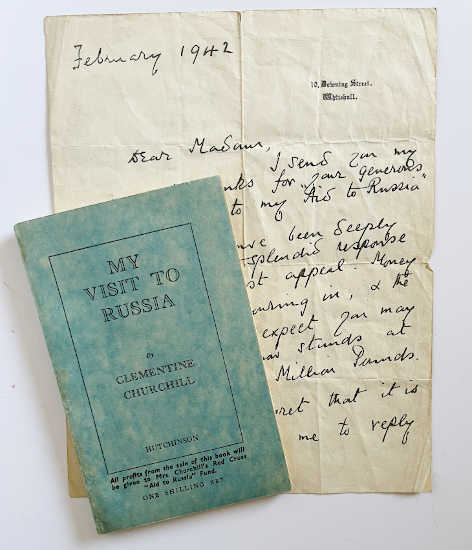 February 1942
10, Downing Street,
Whitehall.
Dear Madam,
I send you my
thanks for your generous
to my "Aid to Russia"
have been deeply
splendid response
appeal. Money
pouring in, & the
expect you may
stands at
Million Pounds.
regret that it is
me to reply
MY
VISIT TO
RUSSIA
By
CLEMENTINE
CHURCHILL
HUTCHINSON
All profits from the sale of this book will
be given to Mrs. Churchill's Red Cross
"Aid to Russia" Fund.
ONE SHILLING NET